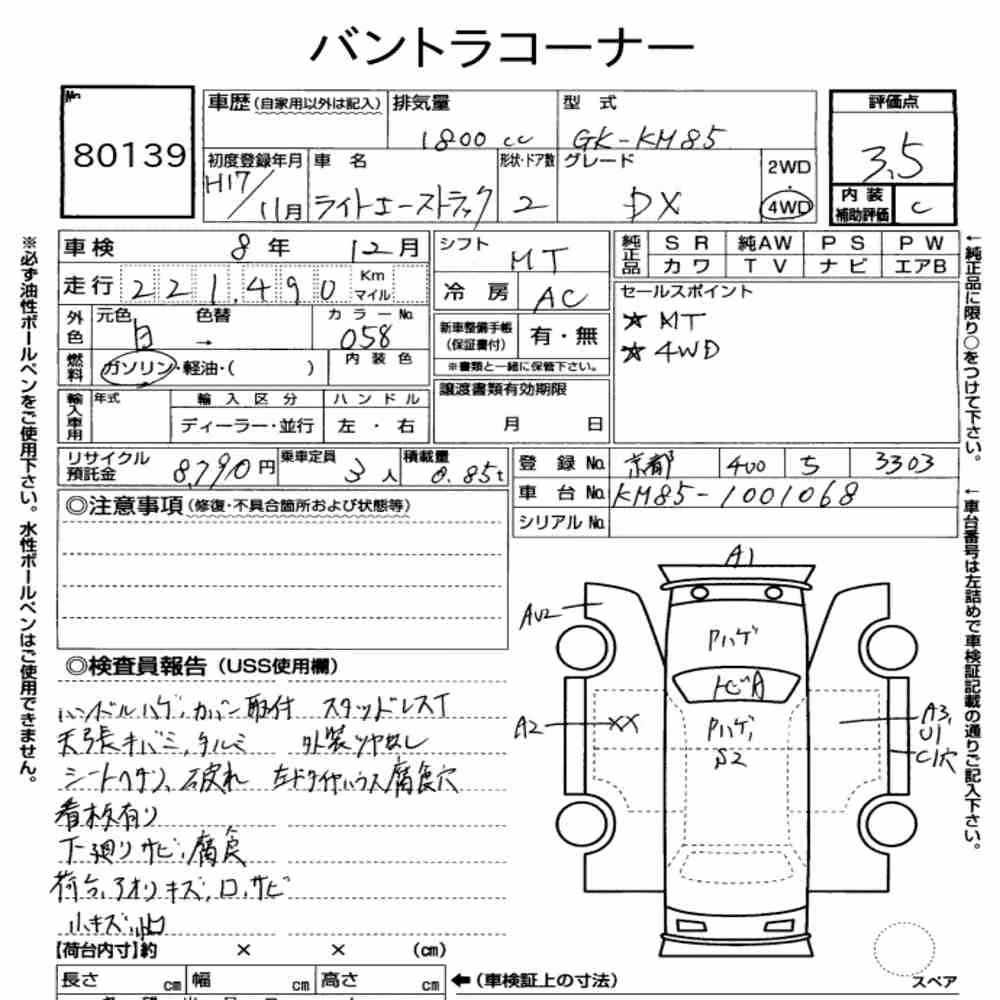 バントラコーナー
No. 80139
車歴 (自家用以外は記入) 排気量 1800 cc 型式 GK-KM85
初度登録年月 H17/11月 車名 ライトエーストラック 形状・ドア数 2 グレード DX 2WD・4WD
評価点 3.5
内装補助評価 C
車検 8年 12月
走行 221,490 Km マイル
外色 元色 白 色替 → カラーNo. 058
燃料 ガソリン・軽油・( ) 内装色
輸入車用 年式 輸入区分 ディーラー・並行 ハンドル 左・右
シフト MT
冷房 AC
新車整備手帳 (保証書付) 有・無
※書類と一緒に保管下さい。
譲渡書類有効期限 月 日
純正品 SR 純AW PS PW
カワ TV ナビ エアB
セールスポイント
☆ MT
☆ 4WD
リサイクル預託金 8,790円 乗車定員 3人 積載量 0.85t
登録No. 京都 400 ち 3303
車台No. KM85-1001068
シリアルNo.
◎注意事項 (修復・不具合箇所および状態等)
◎検査員報告 (USS使用欄)
ハンドルハゲ、カバー取付 スタッドレスT
天張キバミ、タルミ 外装ツヤなし
シートヘタリ、破れ 左ドタイヤハウス腐食穴
看板有り
下廻りサビ、腐食
荷台、アオリキズ、凹、サビ
小キズ、凹
【荷台内寸】約 × × (cm)
長さ cm 幅 cm 高さ cm ←(車検証上の寸法)
A1
AU2
Pハゲ
トビA
A2 XX Pハゲ、 A3,
S2 U1
C1穴
スペア
※必ず油性ボールペンをご使用下さい。水性ボールペンはご使用できません。
←純正品に限り○をつけて下さい。
←車台番号は左詰めで車検証記載の通りご記入下さい。